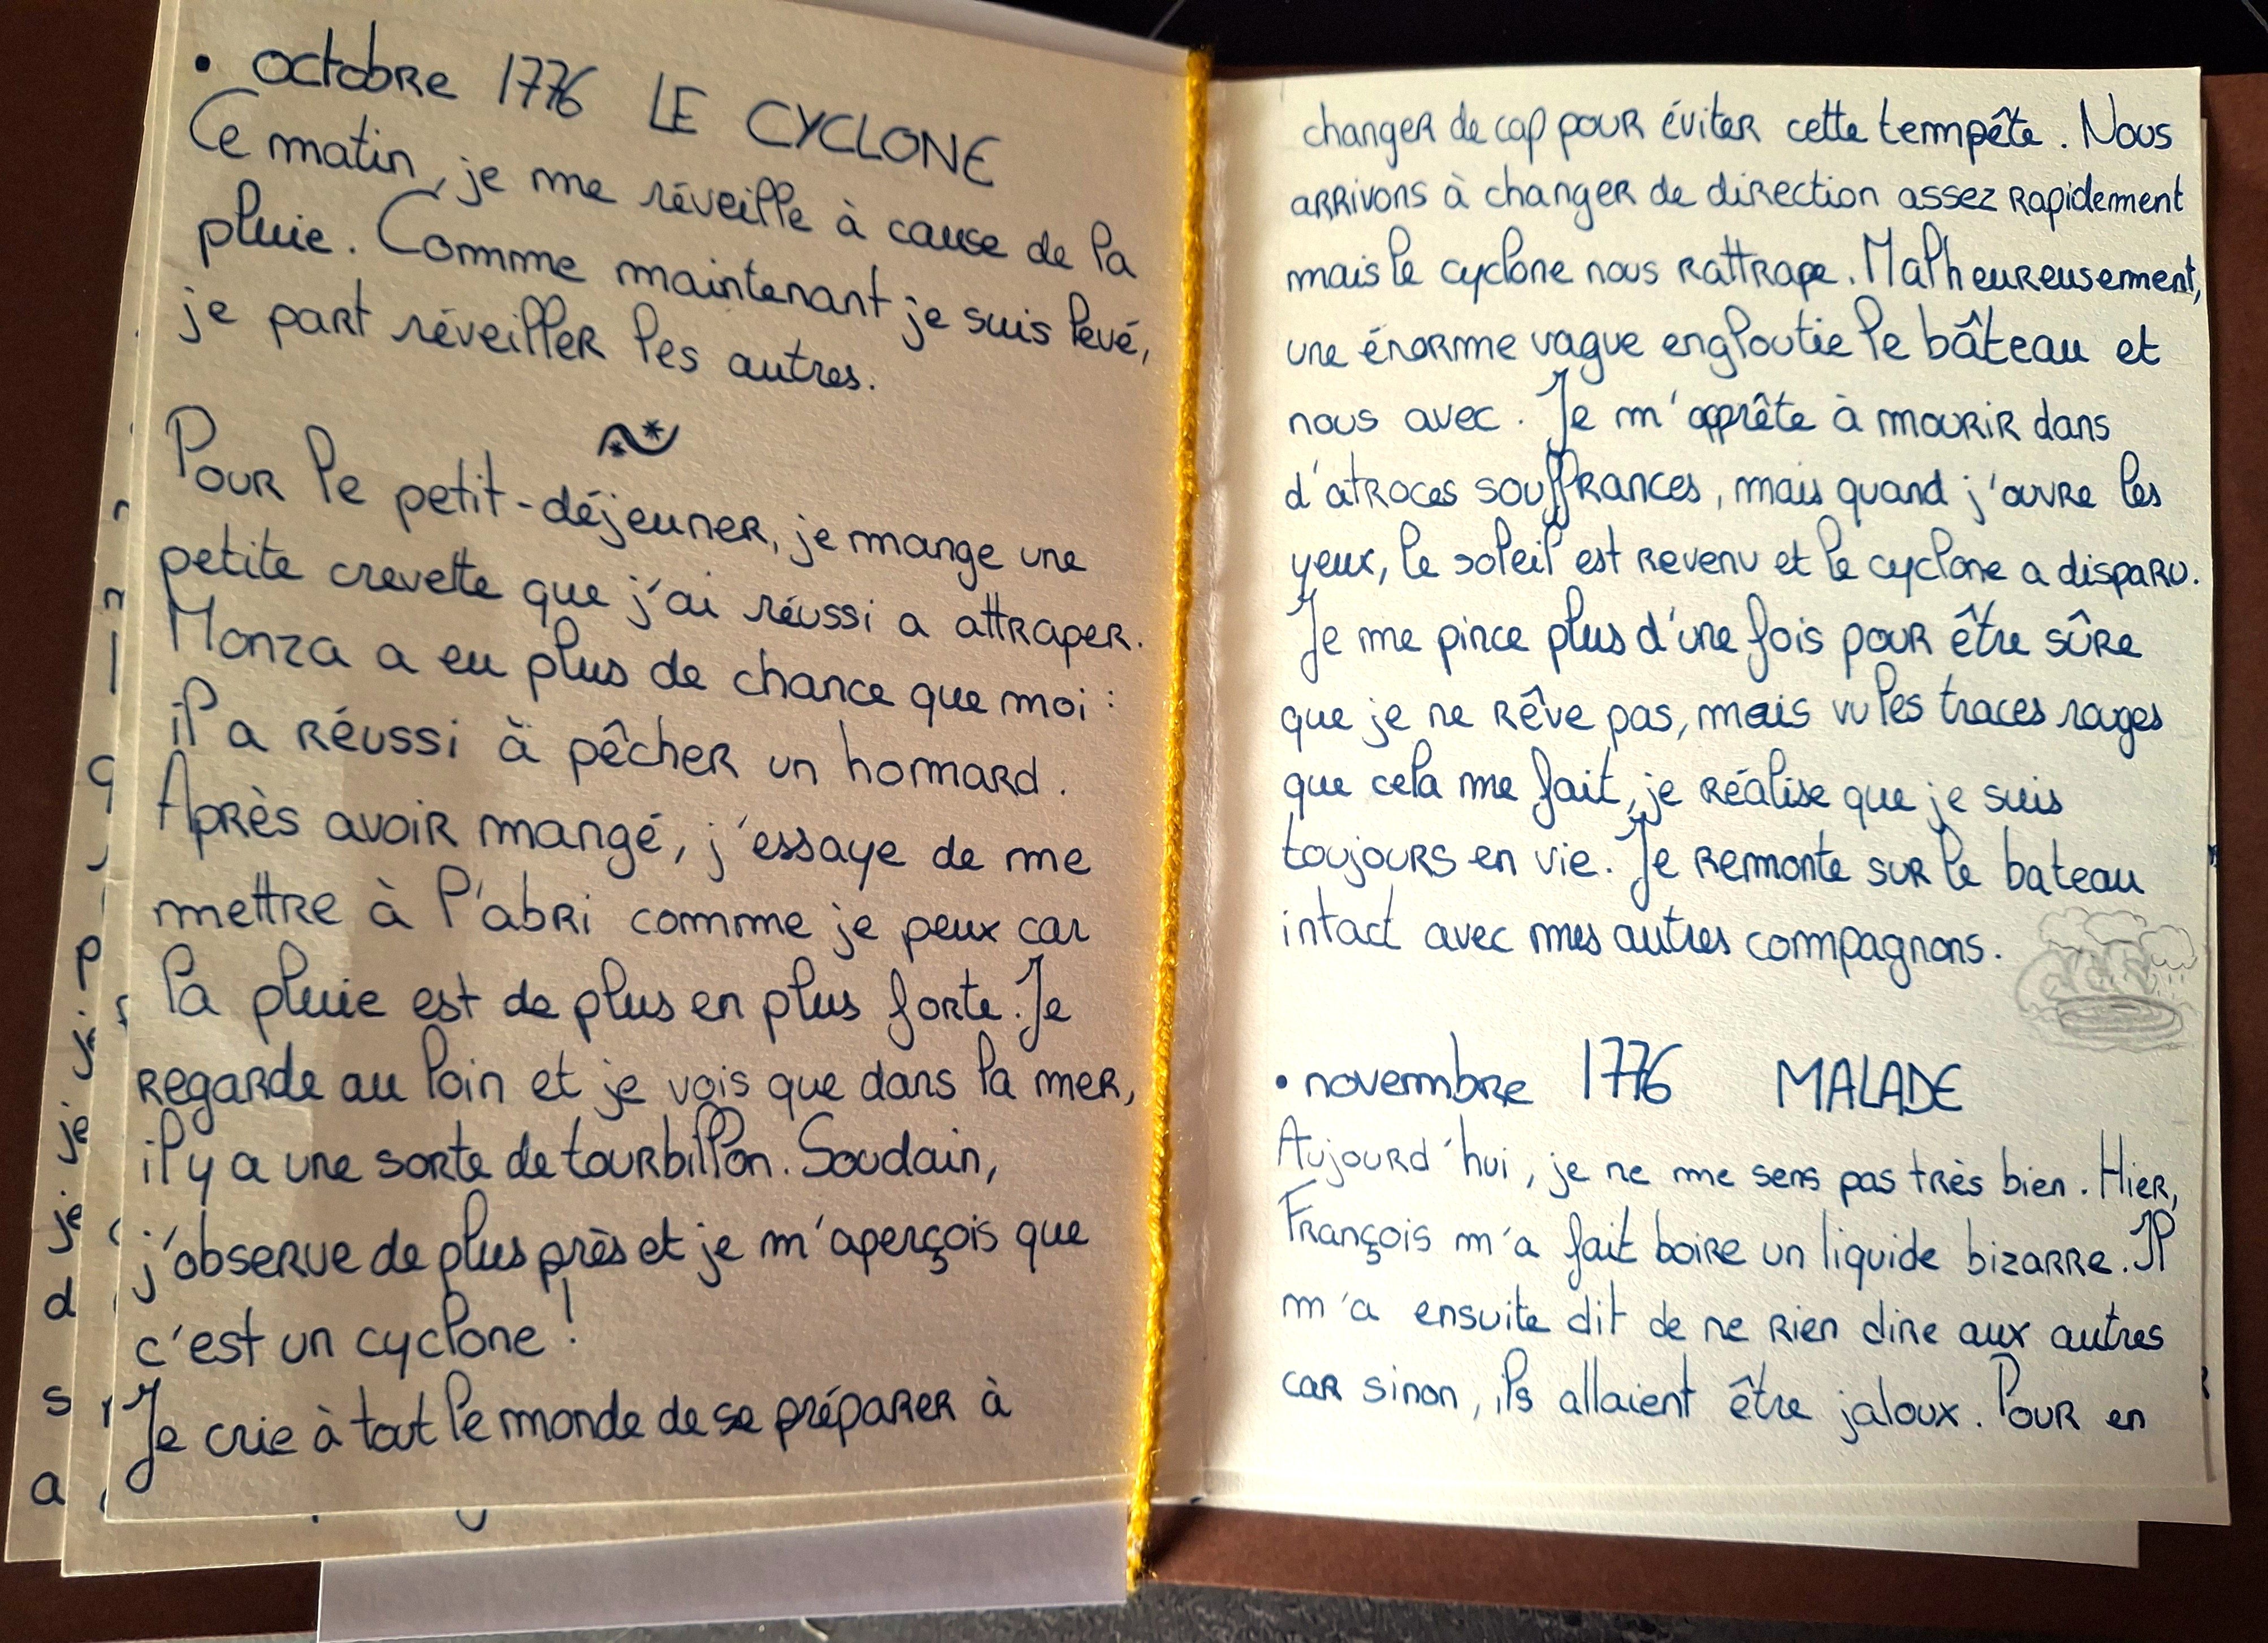 • octobre 1776 LE CYCLONE
Ce matin, je me réveille à cause de la
pluie. Comme maintenant je suis levé,
je part réveiller les autres.
Pour le petit-déjeuner, je mange une
petite crevette que j'ai réussi a attraper.
Monza a eu plus de chance que moi :
il a réussi à pêcher un homard.
Après avoir mangé, j'essaye de me
mettre à l'abri comme je peux car
la pluie est de plus en plus forte. Je
regarde au loin et je vois que dans la mer,
il y a une sorte de tourbillon. Soudain,
j'observe de plus près et je m'aperçois que
c'est un cyclone !
Je crie à tout le monde de se préparer à
changer de cap pour éviter cette tempête. Nous
arrivons à changer de direction assez rapidement
mais le cyclone nous rattrape. Malheureusement,
une énorme vague engloutie le bâteau et
nous avec. Je m'apprête à mourir dans
d'atroces souffrances, mais quand j'ouvre les
yeux, le soleil est revenu et le cyclone a disparu.
Je me pince plus d'une fois pour être sûre
que je ne rêve pas, mais vu les traces rouges
que cela me fait, je réalise que je suis
toujours en vie. Je remonte sur le bateau
intact avec mes autres compagnons.
• novembre 1776 MALADE
Aujourd'hui, je ne me sens pas très bien. Hier,
François m'a fait boire un liquide bizarre. Il
m'a ensuite dit de ne rien dire aux autres
car sinon, ils allaient être jaloux. Pour en